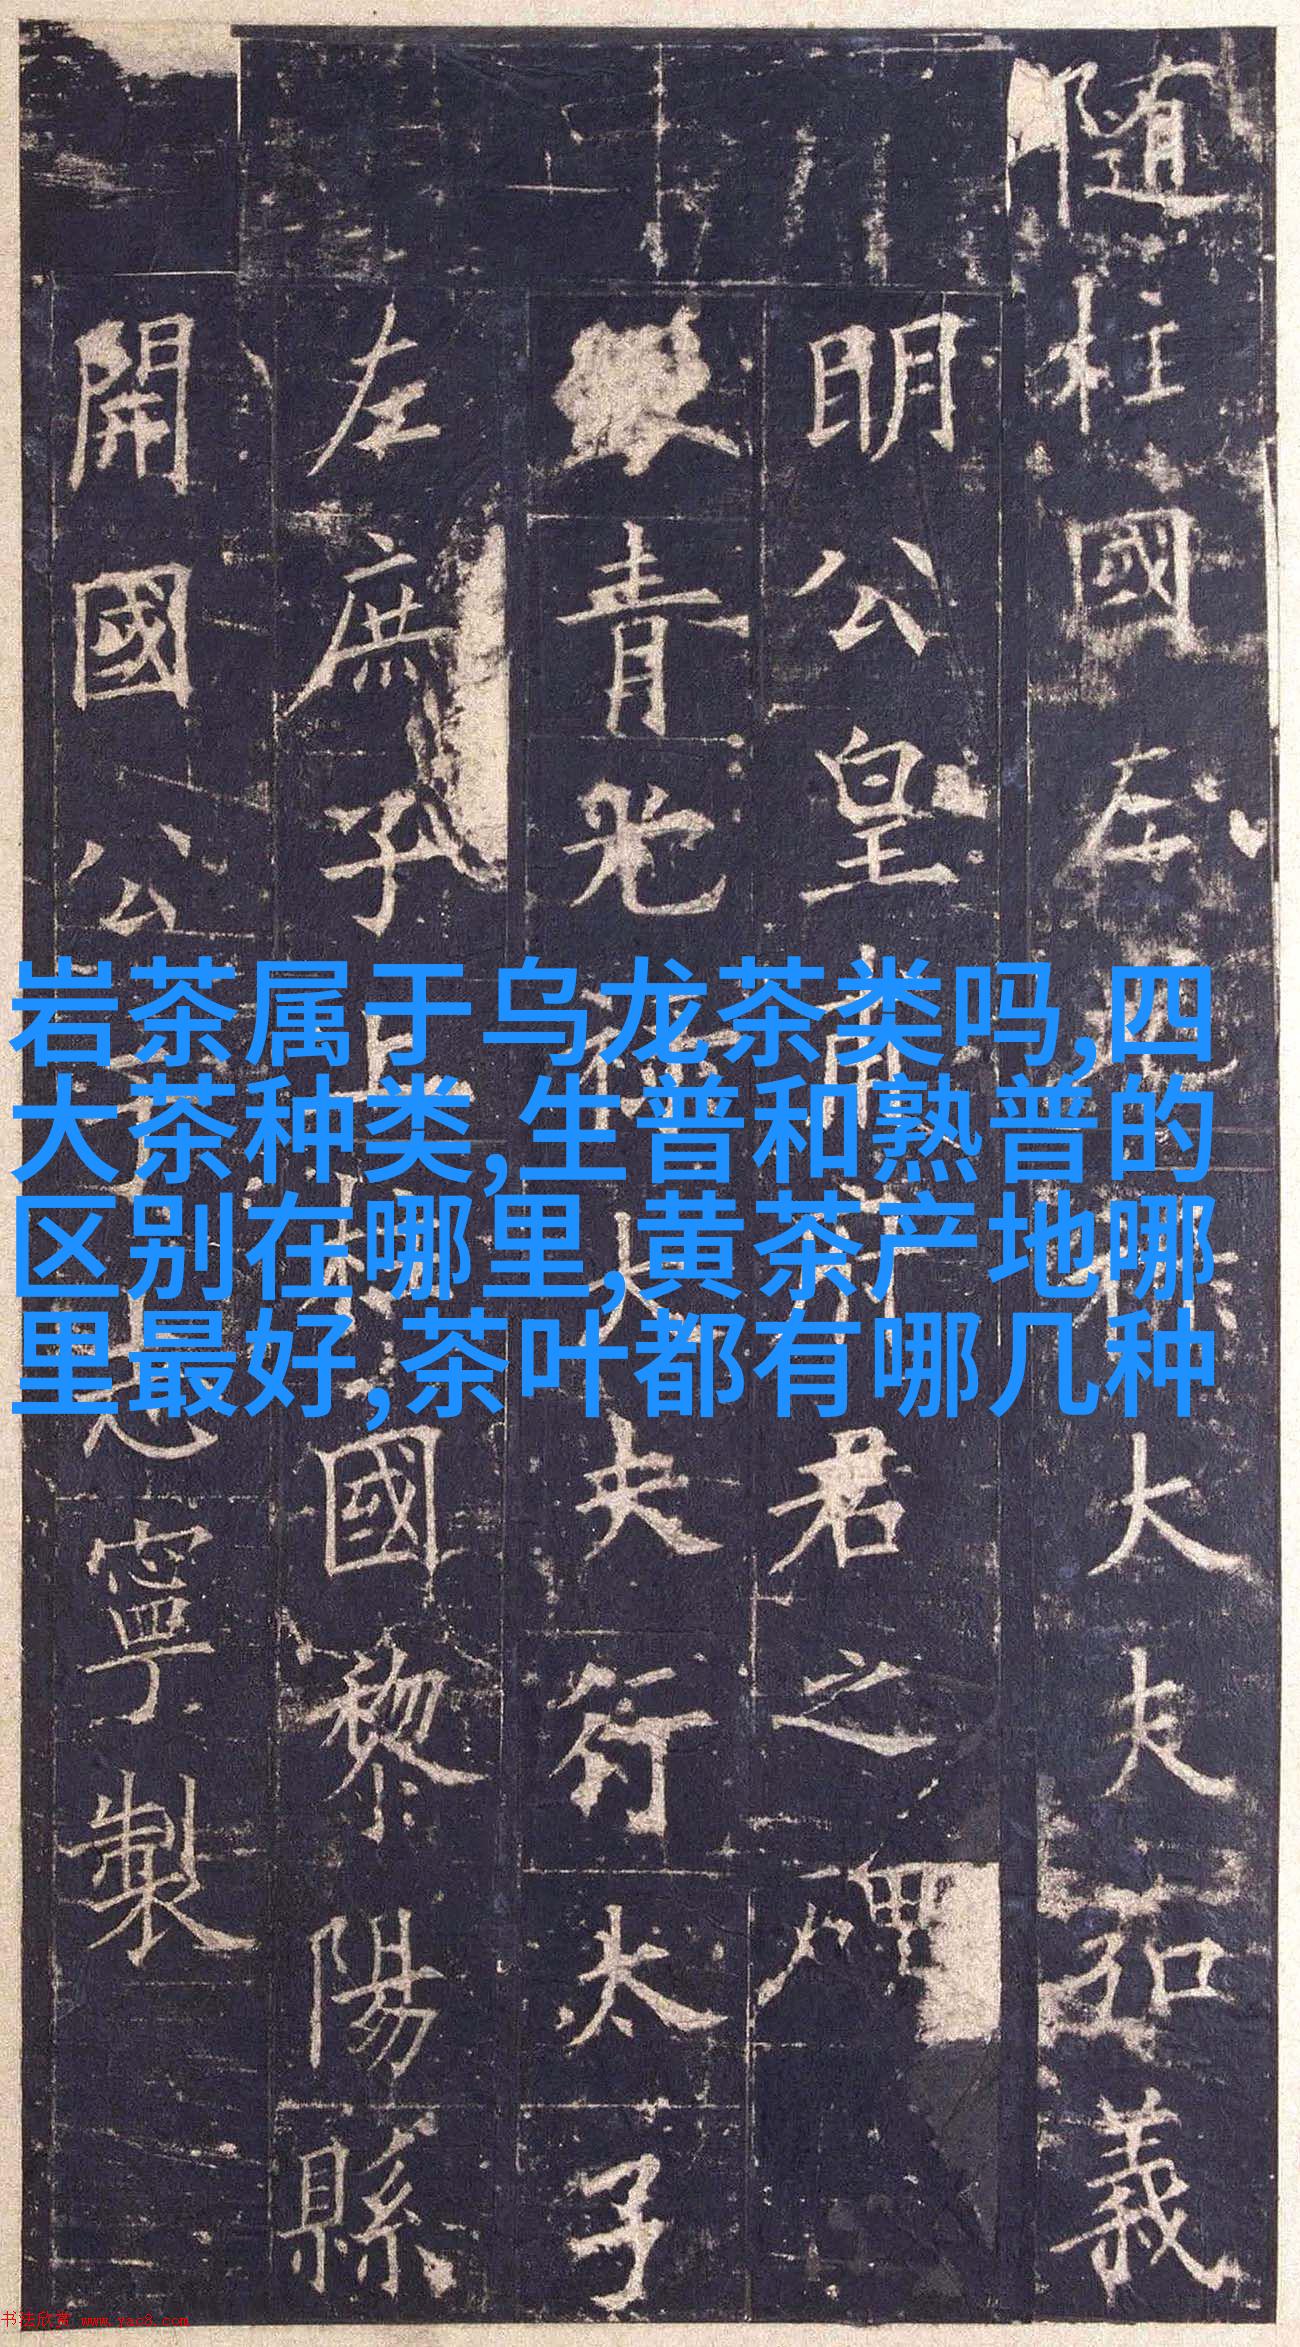 随柱國左光祿大夫弘義
明公皇甫府君之碑
銀青光祿大夫行太子
左庶子上柱國黎陽縣
開國公于志寧製
岩茶属于乌龙茶类吗,四
大茶种类,生普和熟普的
区别在哪里,黄茶产地哪
里最好,茶叶都有哪几种
书法欣赏 www.yac8.com